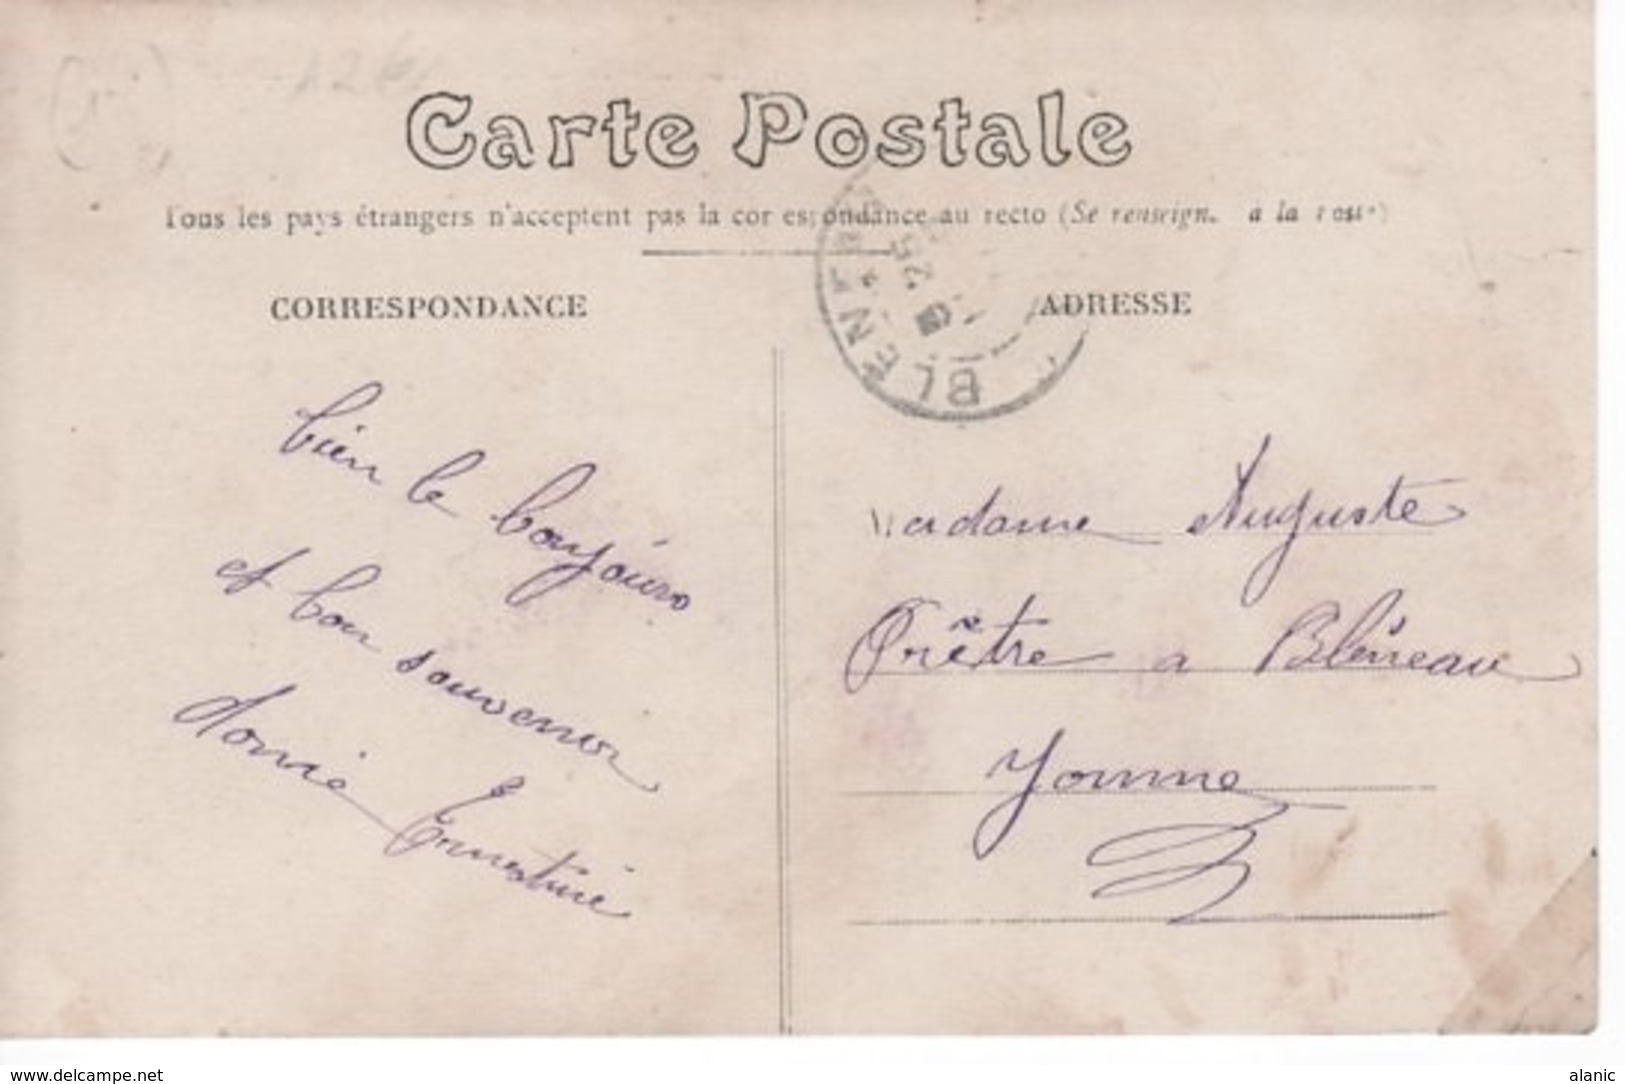 Carte Postale
Tous les pays étrangers n'acceptent pas la cor espondance au recto (Se renseign. à la
CORRESPONDANCE
ADRESSE
BLENEAU
25
bien le bonjour
et bon souvenir
Ernestine
Madame Auguste
Prêtre a Bléneau
Yonne
www.delcampe.net
alanic